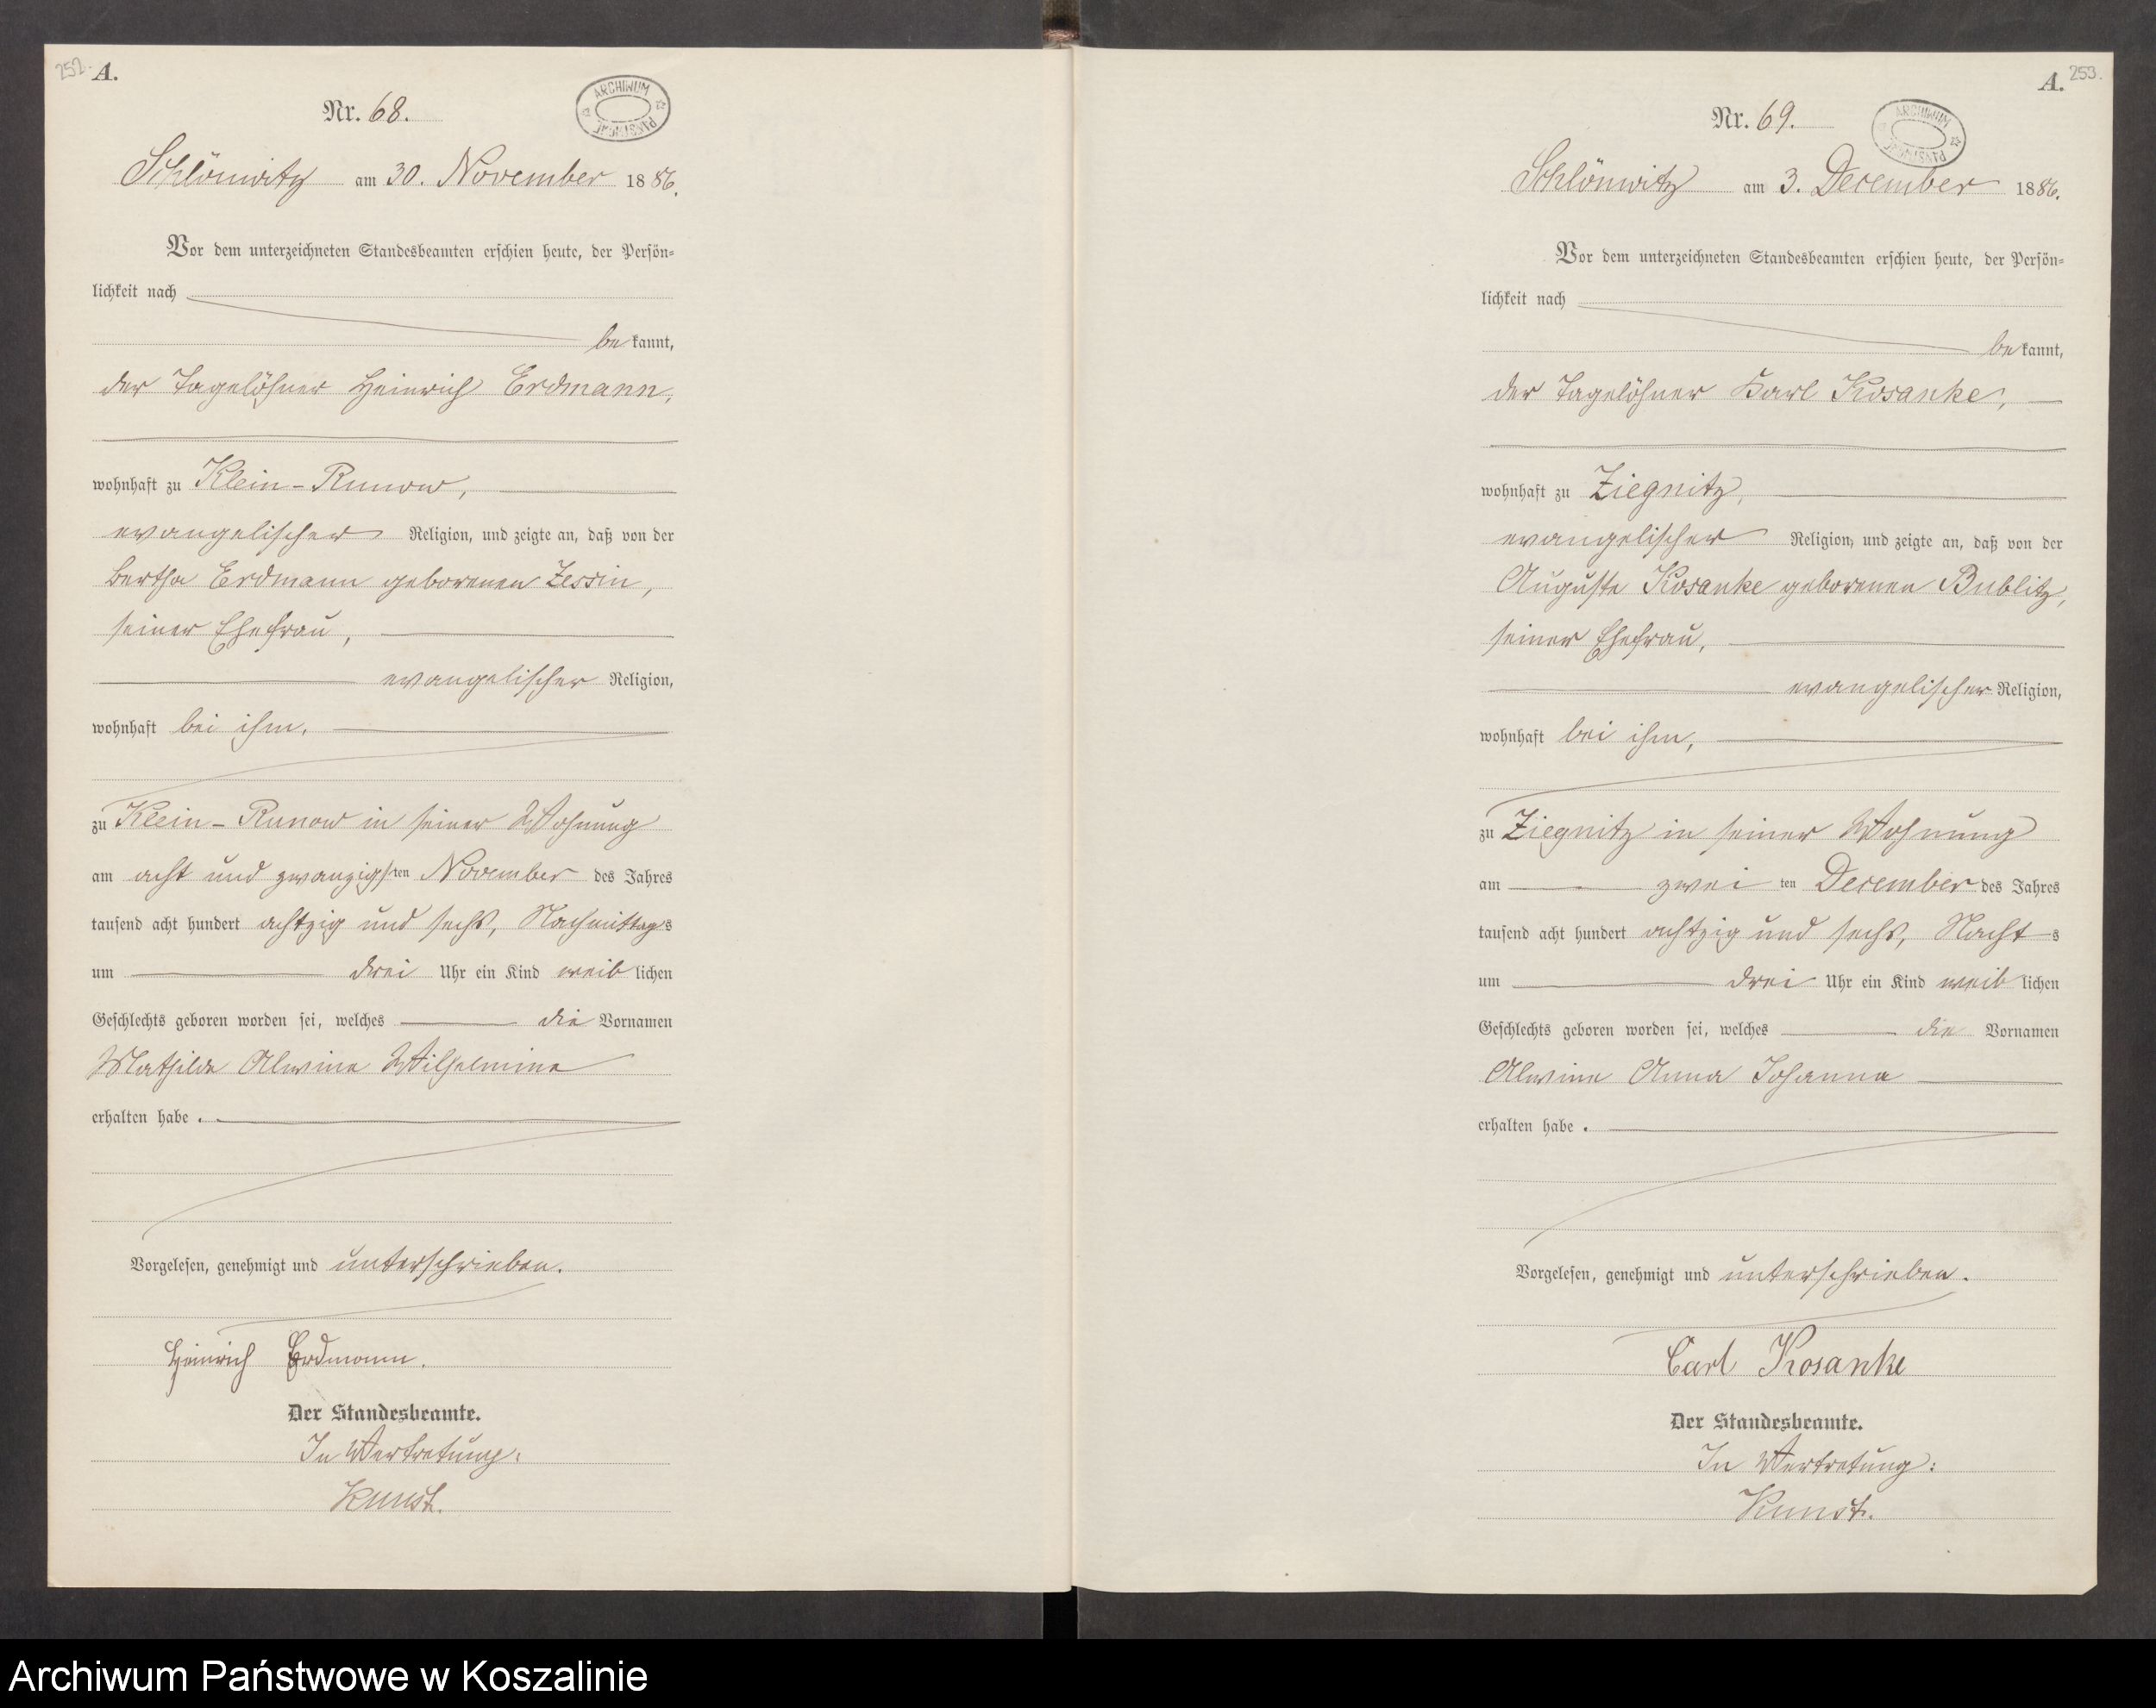 252.
A.
Nr. 68.
ARCHIWUM PAŃSTWOWE
Schlönwitz am 30. November 1886.
Vor dem unterzeichneten Standesbeamten erschien heute, der Persön-
lichkeit nach
be kannt,
der Tagelöhner Heinrich Erdmann,
wohnhaft zu Klein-Runow,
evangelischer Religion, und zeigte an, daß von der
Bertha Erdmann geborenen Zessin,
seiner Ehefrau,
evangelischer Religion,
wohnhaft bei ihm,
zu Klein-Runow in seiner Wohnung
am acht und zwanzigsten November des Jahres
tausend acht hundert achtzig und sechs, Nachmittags
um drei Uhr ein Kind weiblichen
Geschlechts geboren worden sei, welches die Vornamen
Mathilde Alwine Wilhelmine
erhalten habe.
Vorgelesen, genehmigt und unterschrieben.
Heinrich Erdmann.
Der Standesbeamte.
In Vertretung:
Kunst.
A.
253.
Nr. 69.
ARCHIWUM PAŃSTWOWE
Schlönwitz am 3. December 1886.
Vor dem unterzeichneten Standesbeamten erschien heute, der Persön-
lichkeit nach
be kannt,
der Tagelöhner Karl Kosanke,
wohnhaft zu Ziegnitz,
evangelischer Religion, und zeigte an, daß von der
Auguste Kosanke geborenen Bublitz,
seiner Ehefrau,
evangelischer Religion,
wohnhaft bei ihm,
zu Ziegnitz in seiner Wohnung
am zwei ten December des Jahres
tausend acht hundert achtzig und sechs, Nachts
um drei Uhr ein Kind weiblichen
Geschlechts geboren worden sei, welches die Vornamen
Alwine Anna Johanna
erhalten habe.
Vorgelesen, genehmigt und unterschrieben.
Carl Kosanke
Der Standesbeamte.
In Vertretung:
Kunst.
Archiwum Państwowe w Koszalinie